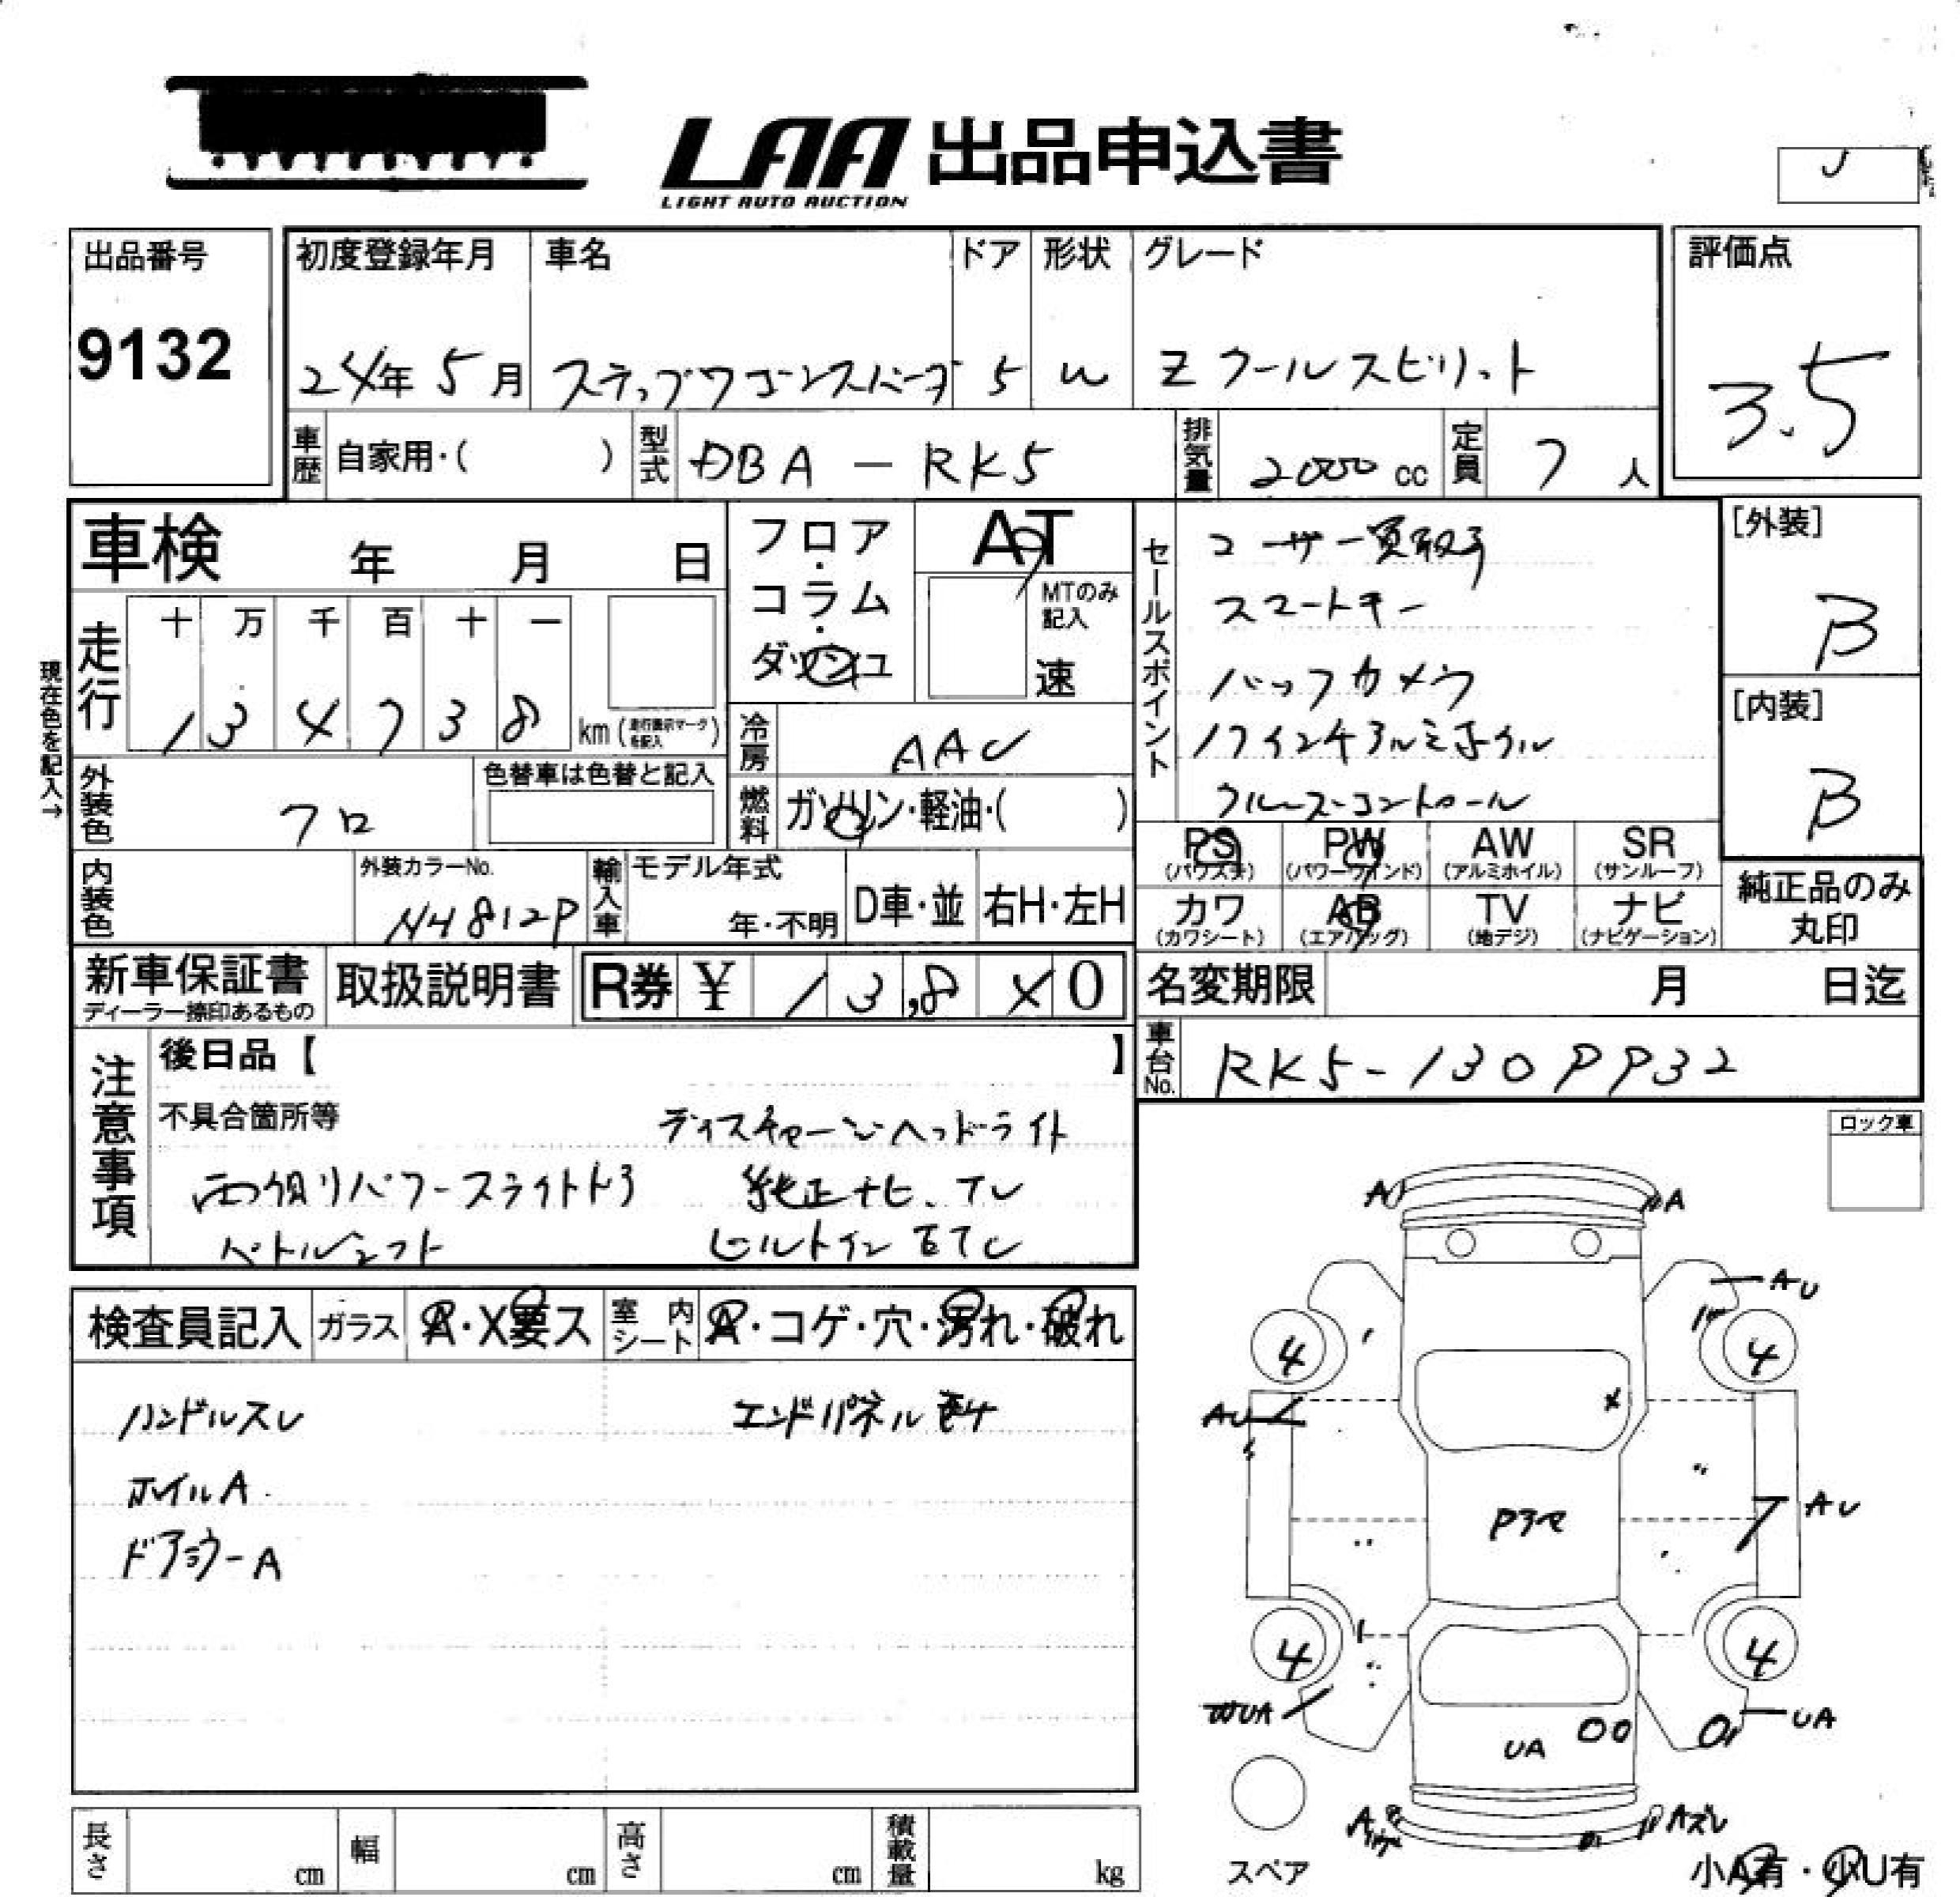 LAA 出品申込書
LIGHT AUTO AUCTION
出品番号
9132
初度登録年月
24年 5月
車名
ステップワゴンスパーダ
ドア
5
形状
W
グレード
Z クールスピリット
評価点
3.5
車歴 自家用・( )
型式 DBA - RK5
排気量 2000 cc
定員 7 人
車検 年 月 日
フロア・コラム・ダッシュ
AT
MTのみ記入
速
セールスポイント
ユーザー買取车
スマートキー
バックカメラ
17インチアルミホイル
クルーズコントロール
[外装]
B
[内装]
B
現在色を記入→
走行
十 万 千 百 十 一
1 3 4 7 3 8 km (走行表示マークを記入)
冷房 AAC
外装色 クロ
色替車は色替と記入
燃料 ガソリン・軽油・( )
PS (パワステ)
PW (パワーウインド)
AW (アルミホイル)
SR (サンルーフ)
カワ (カワシート)
AB (エアバッグ)
TV (地デジ)
ナビ (ナビゲーション)
純正品のみ丸印
内装色
外装カラーNo.
NH812P
輸入車
モデル年式
年・不明
D車・並
右H・左H
新車保証書
ディーラー捺印あるもの
取扱説明書
R券 ¥ 13,8 0
名変期限 月 日迄
車台No. RK5-130
注意事項
後日品【 】
不具合箇所等
ディスチャージヘッドライト
両側パワースライドドア 純正ナビ、TV
パドルシフト ビルトインETC
ロック車
検査員記入
ガラス A・X要ス
室内シート A・コゲ・穴・汚れ・破れ
ハンドルスレ
エンドパネル
ホイルA
ドアミラーA
A
A
AU
4
4
AU
X
AU
4
4
UA
UA
UA
A
Aズレ
スペア
小A有・小U有
長さ cm
幅 cm
高さ cm
積載量 kg